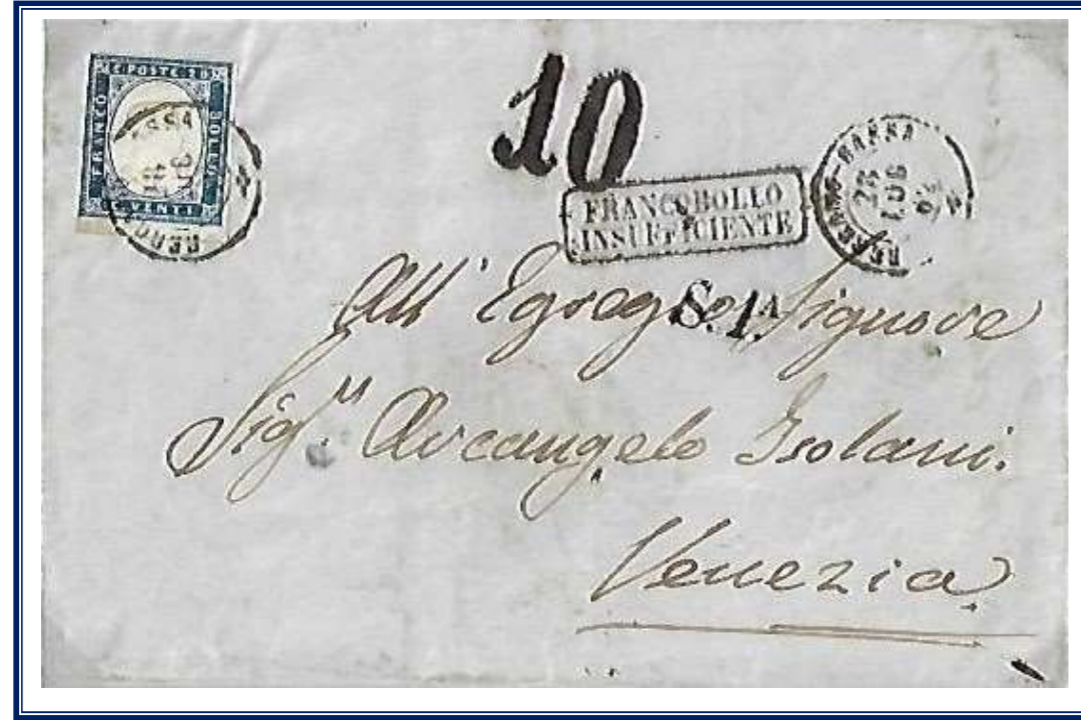 C. POSTE 20
FRANCO
BOLLO
C. VENTI
10
FRANCOBOLLO
INSUFFICIENTE
BERGAMO-BASSA
28
LUG
62
S. 1.A
All' Egregio Signore
Sig.r Arcangelo Isolani.
Venezia